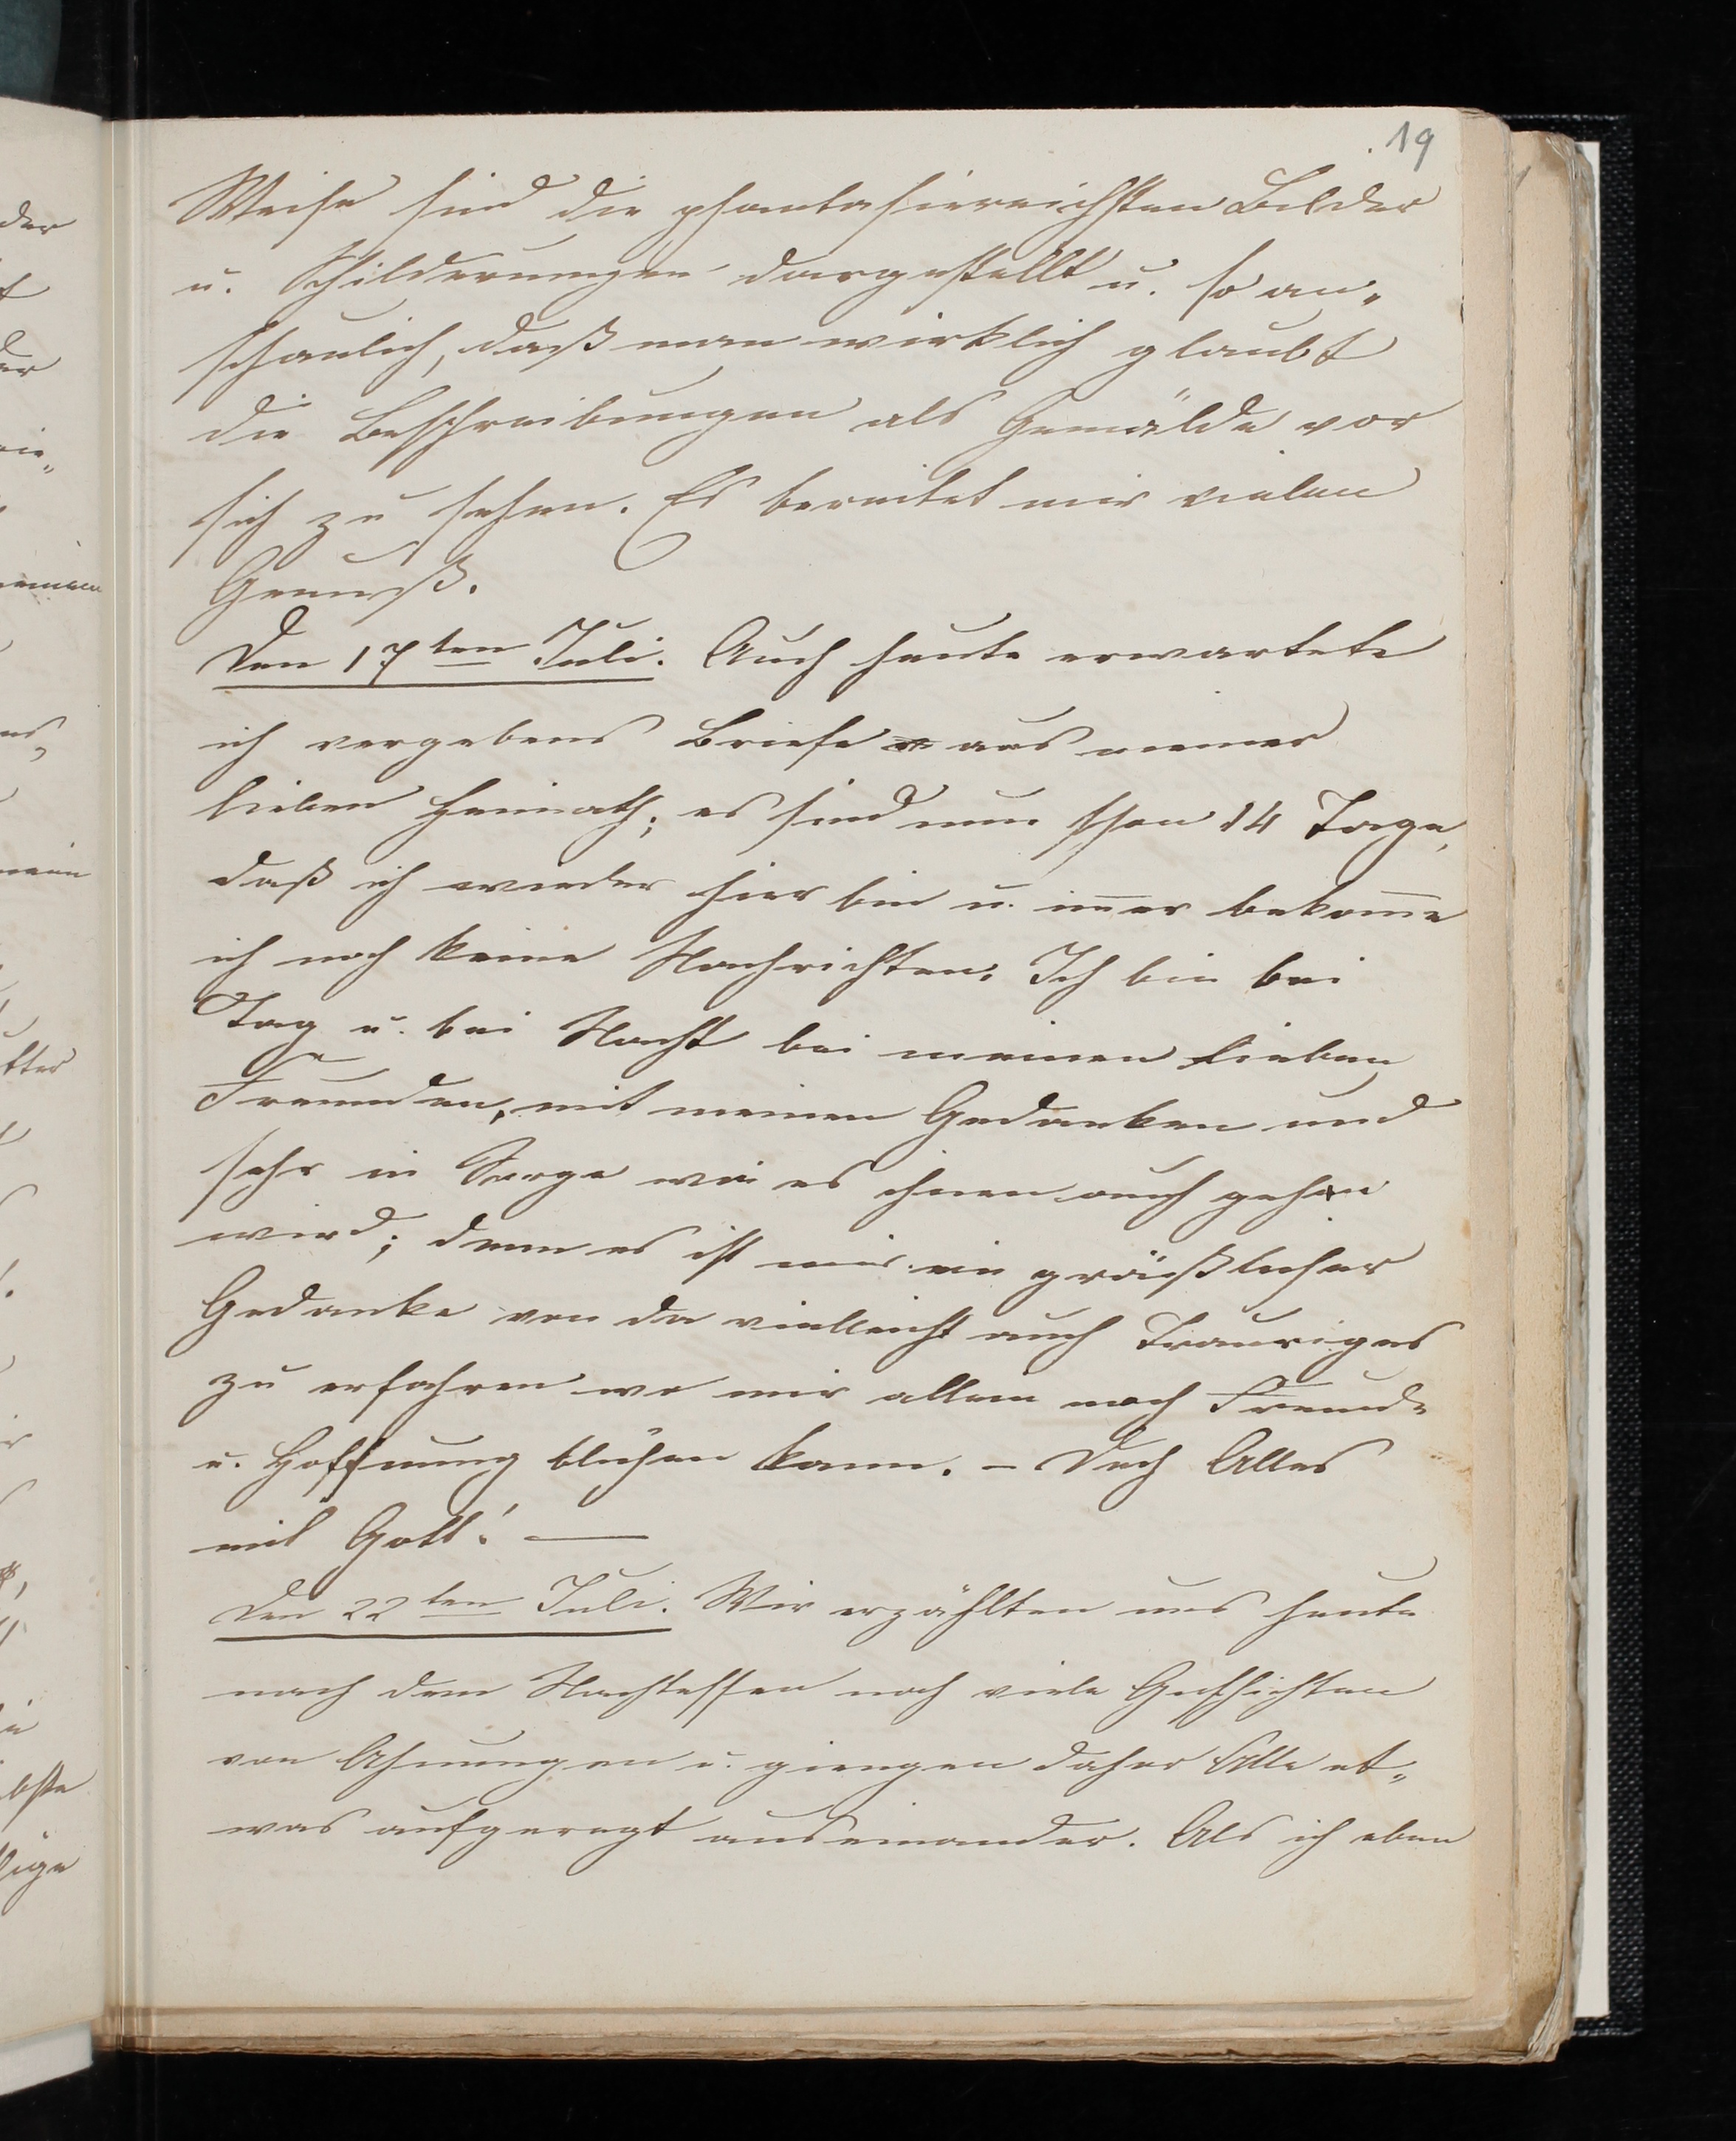 19
Weise sind die phantasiereichsten Bilder
u. Schilderungen dargestellt u. so an„
schaulich, daß man wirklich glaubt
die Beschreibungen als Gemälde vor
sich zu sehen. Es bereitet mir vielen
Genuß.
Den 17ten Juli. Auch heute erwartete
ich vergebens Briefe aus meiner
lieben Heimath; es sind nun schon 14 Tage,
daß ich wieder hier bin u. im̅er bekom̅e
ich noch keine Nachrichten. Ich bin bei
Tag u. bei Nacht bei meinen lieben
Freunden, mit meinen Gedanken und
sehr in Sorge wie es ihnen auch gehen
wird; denn es ist mir ein gräßlicher
Gedanke von da vielleicht auch Trauriges
zu erfahren wo mir allein noch Freude
u. Hoffnung blühen kann. – Doch Alles
mit Gott! —
Den 22ten Juli. Wir erzählten uns heute
nach dem Nachtessen noch viele Geschichten
von Ahnungen u. giengen daher Alle et„
was aufgeregt auseinander. Als ich eben